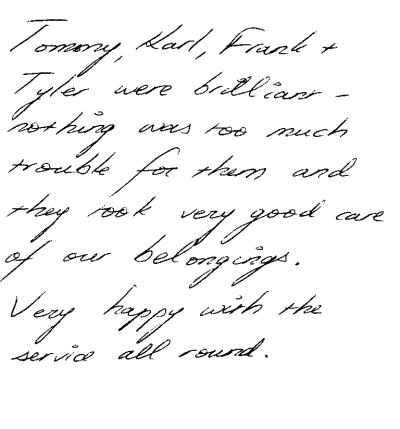 Tommy, Karl, Frank +
Tyler were brilliant -
nothing was too much
trouble for them and
they took very good care
of our belongings.
Very happy with the
service all round.